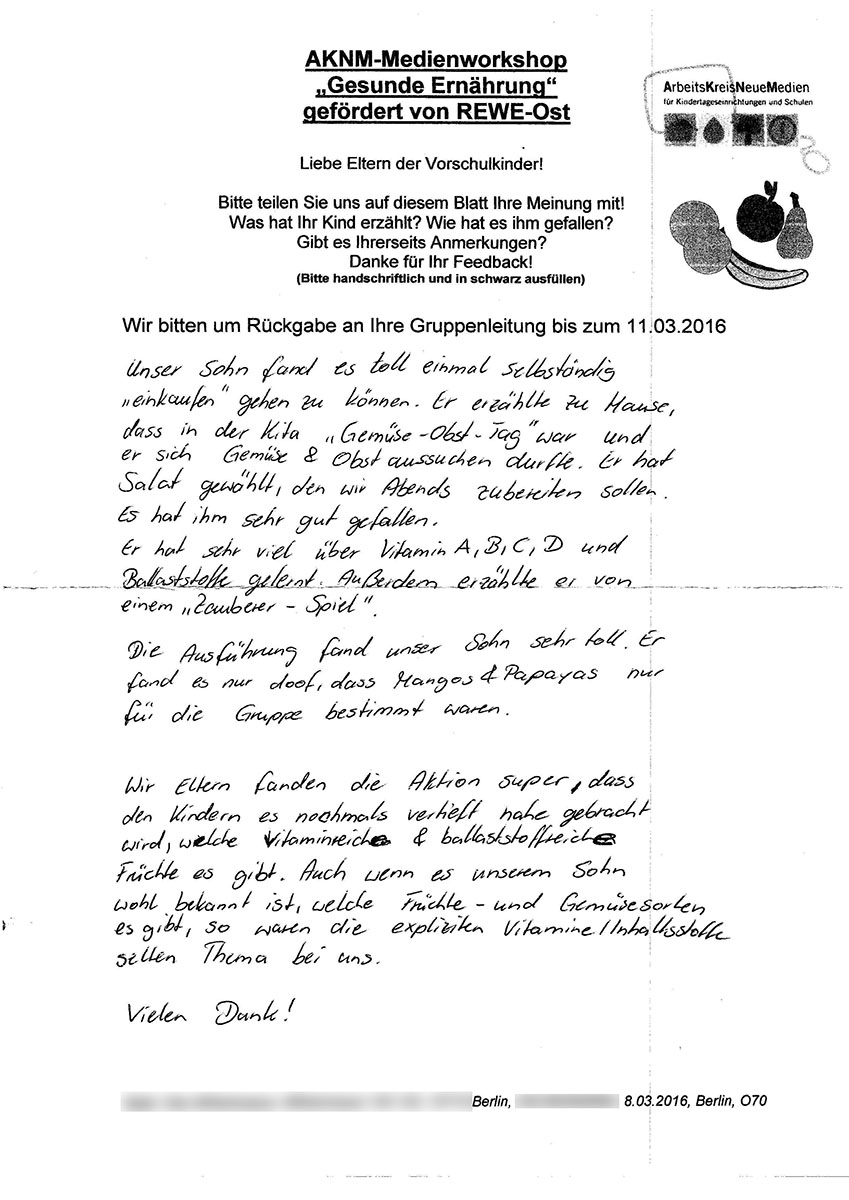 AKNM-Medienworkshop
„Gesunde Ernährung“
gefördert von REWE-Ost
ArbeitsKreisNeueMedien
für Kindertageseinrichtungen und Schulen
Liebe Eltern der Vorschulkinder!
Bitte teilen Sie uns auf diesem Blatt Ihre Meinung mit!
Was hat Ihr Kind erzählt? Wie hat es ihm gefallen?
Gibt es Ihrerseits Anmerkungen?
Danke für Ihr Feedback!
(Bitte handschriftlich und in schwarz ausfüllen)
Wir bitten um Rückgabe an Ihre Gruppenleitung bis zum 11.03.2016
Unser Sohn fand es toll einmal selbständig
„einkaufen“ gehen zu können. Er erzählte zu Hause,
dass in der Kita „Gemüse-Obst-Tag“ war und
er sich Gemüse & Obst aussuchen durfte. Er hat
Salat gewählt, den wir Abends zubereiten sollen.
Es hat ihm sehr gut gefallen.
Er hat sehr viel über Vitamin A, B, C, D und
Ballaststoffe gelernt. Außerdem erzählte er von
einem „Zauberer-Spiel“.
Die Ausführung fand unser Sohn sehr toll. Er
fand es nur doof, dass Mangos & Papayas nur
für die Gruppe bestimmt waren.
Wir Eltern fanden die Aktion super, dass
den Kindern es nochmals vertieft nahe gebracht
wird, welche Vitaminreiche & ballaststoffreiche
Früchte es gibt. Auch wenn es unserem Sohn
wohl bekannt ist, welche Früchte- und Gemüsesorten
es gibt, so waren die expliziten Vitamine/Inhaltsstoffe
selten Thema bei uns.
Vielen Dank!
Berlin, 8.03.2016, Berlin, O70